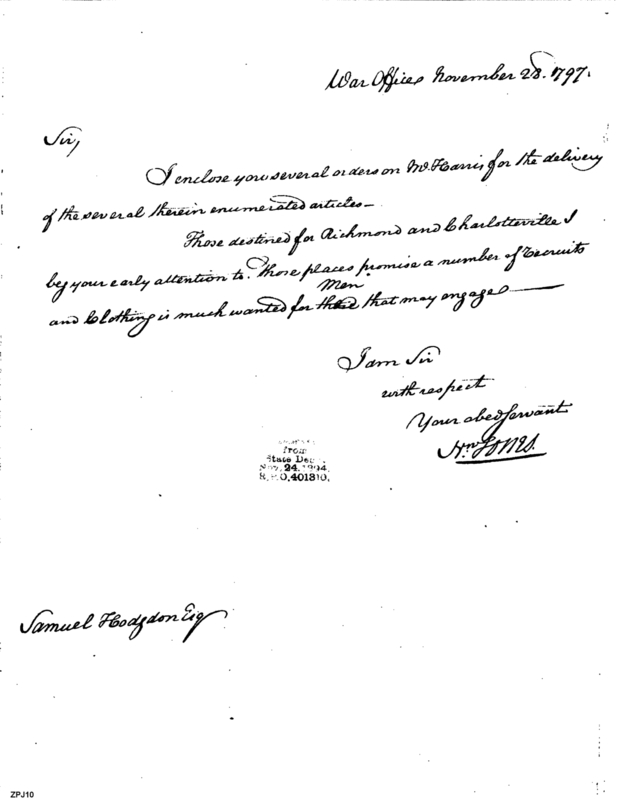 War Office November 28. 1797.
Sir,
I enclose you several orders on Mr. Harris for the delivery
of the several therein enumerated articles —
Those destined for Richmond and Charlotteville I
beg your early attention to. Those places promise a number of Recruits
Men
and Clothing is much wanted for that may engage —
I am Sir
with respect
Your obed Servant
Wm. Jones.
from
State Dep
Nov. 24. 1904.
R.P.O. 401310.
Samuel Hodgdon Esq
ZPJ10